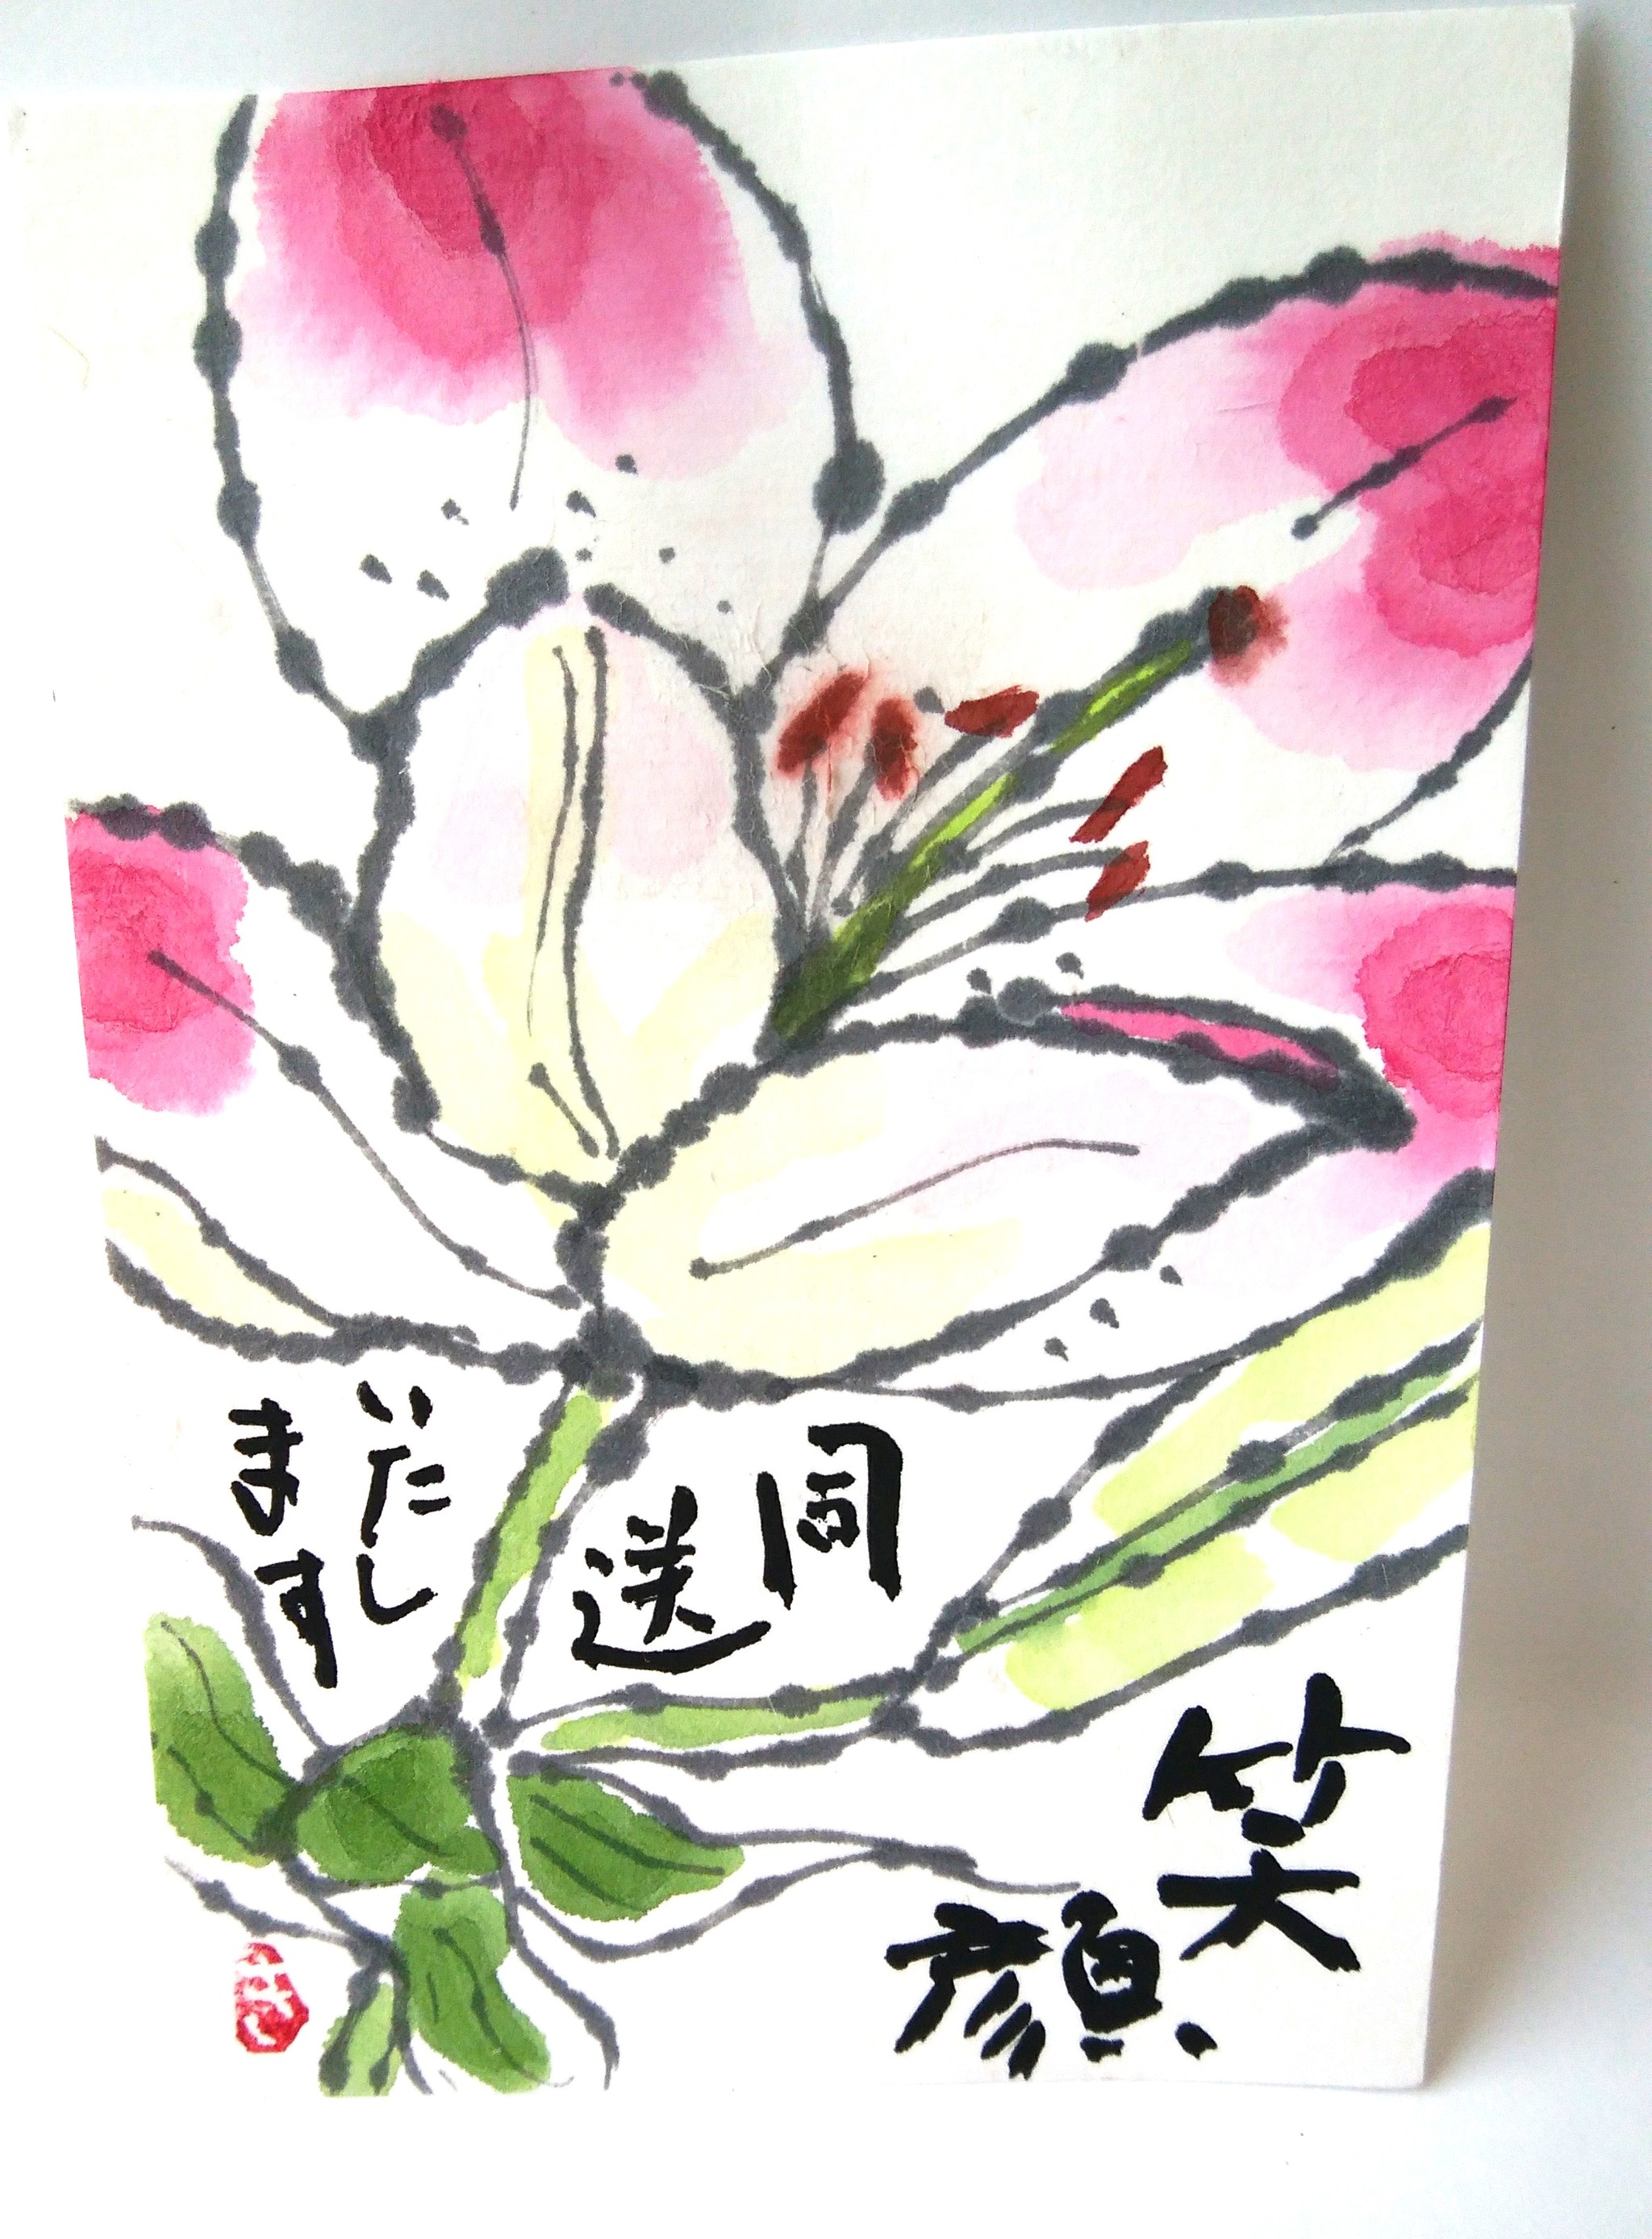 笑
顔
同
送
いたし
ます